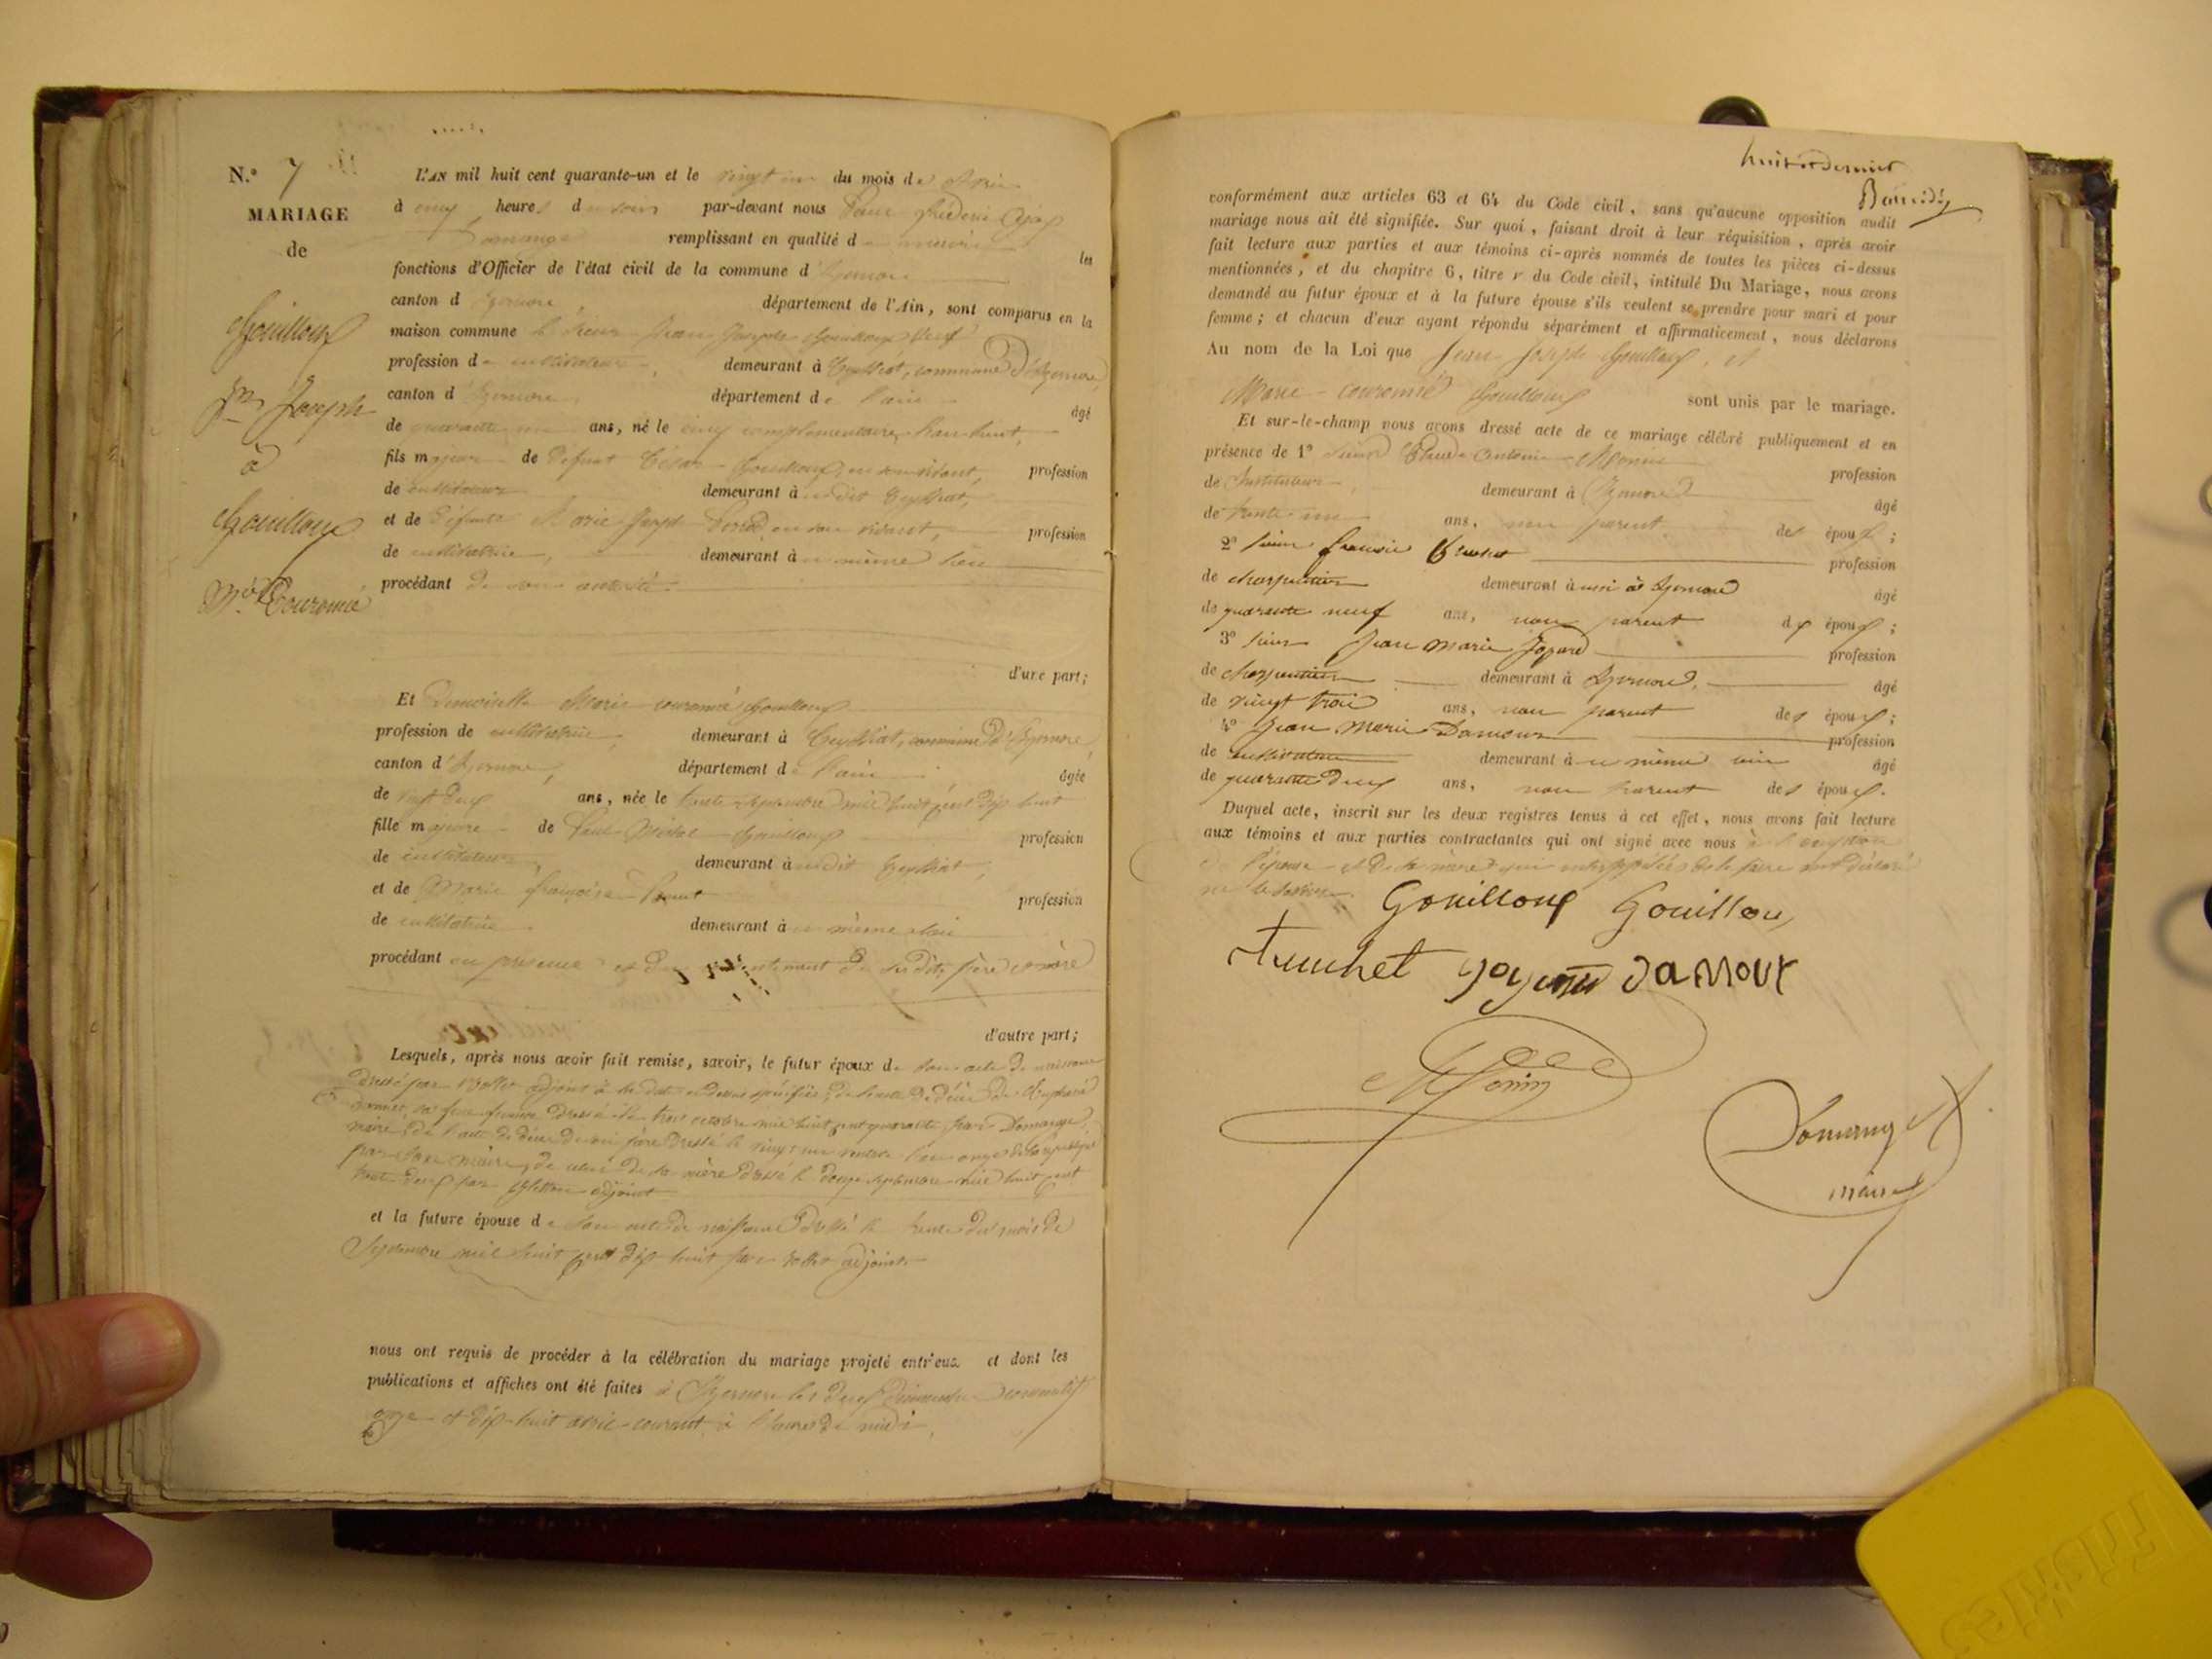 N.° 7
MARIAGE
de
Gouilloux
Jn Joseph
à
Gouilloux
Mie Couronné
L'AN mil huit cent quarante-un et le vingt un du mois de Avril
à cinq heures du soir par-devant nous Paul Frédéric
Domange remplissant en qualité de maire les
fonctions d'Officier de l'état civil de la commune d'Izernore
canton d'Izernore département de l'Ain, sont comparus en la
maison commune le sieur Jean Joseph Gouilloux veuf
profession de cultivateur demeurant à Ceyssiat, commune d'Izernore,
canton d'Izernore département de l'ain âgé
de quarante un ans, né le cinq complémentaire l'an huit,
fils majeur de défunt César Gouilloux, en son vivant, profession
de cultivateur demeurant à dit Ceyssiat,
et de défunte Marie Joseph en son vivant, profession
de cultivatrice, demeurant à même lieu
procédant de son autorité
d'une part;
Et Demoiselle Marie couronné Gouilloux
profession de cultivatrice, demeurant à Ceyssiat, commune d'Izernore,
canton d'Izernore, département de l'ain âgée
de vingt deux ans, née le trente septembre mil huit cent dix huit
fille majeure de Paul Gouilloux profession
de cultivateur demeurant à dit Ceyssiat,
et de Marie françoise profession
de cultivatrice demeurant à même lieu
procédant en présence et du consentement de ses dits père et mère
d'autre part;
Lesquels, après nous avoir fait remise, savoir, le futur époux de son acte de naissance
dressé par adjoint à la date ci dessus spécifiée, de l'acte de décès de
sa feue femme dressé le trois octobre mil huit cent quarante par Domange
maire, de l'acte de décès de son père dressé le vingt un l'an onze
par maire, de celui de sa mère dressé le douze septembre mil huit cent
trente deux par adjoint
et la future épouse de son acte de naissance dressé le trente du mois de
Septembre mil huit cent dix huit par adjoint
nous ont requis de procéder à la célébration du mariage projeté entr'eux et dont les
publications et affiches ont été faites à Izernore les deux dimanches consécutifs
onze et dix-huit avril courant à l'heure de midi,
huit et dernier
conformément aux articles 63 et 64 du Code civil, sans qu'aucune opposition audit
mariage nous ait été signifiée. Sur quoi, faisant droit à leur réquisition, après avoir
fait lecture aux parties et aux témoins ci-après nommés de toutes les pièces ci-dessus
mentionnées, et du chapitre 6, titre v du Code civil, intitulé Du Mariage, nous avons
demandé au futur époux et à la future épouse s'ils veulent se prendre pour mari et pour
femme; et chacun d'eux ayant répondu séparément et affirmativement, nous déclarons
Au nom de la Loi que Jean Joseph Gouilloux, et
Marie couronné Gouilloux sont unis par le mariage.
Et sur-le-champ nous avons dressé acte de ce mariage célébré publiquement et en
présence de 1° sieur Claude Antoine Monin profession
de Instituteur demeurant à Izernore âgé
de trente un ans, non parent des époux;
2° sieur françois profession
de charpentier demeurant aussi à Izernore âgé
de quarante neuf ans, non parent des époux;
3° sieur Jean Marie profession
de charpentier demeurant à Izernore, âgé
de vingt trois ans, non parent des époux;
4° Jean Marie Damour profession
de cultivateur demeurant à même lieu âgé
de quarante deux ans, non parent des époux.
Duquel acte, inscrit sur les deux registres tenus à cet effet, nous avons fait lecture
aux témoins et aux parties contractantes qui ont signé avec nous à l'exception
de l'épouse et de la mère qui interpellées de le faire ont déclaré
ne le savoir
Gouilloux Gouilloux
Damour
Monin
Domange
maire
Friskies